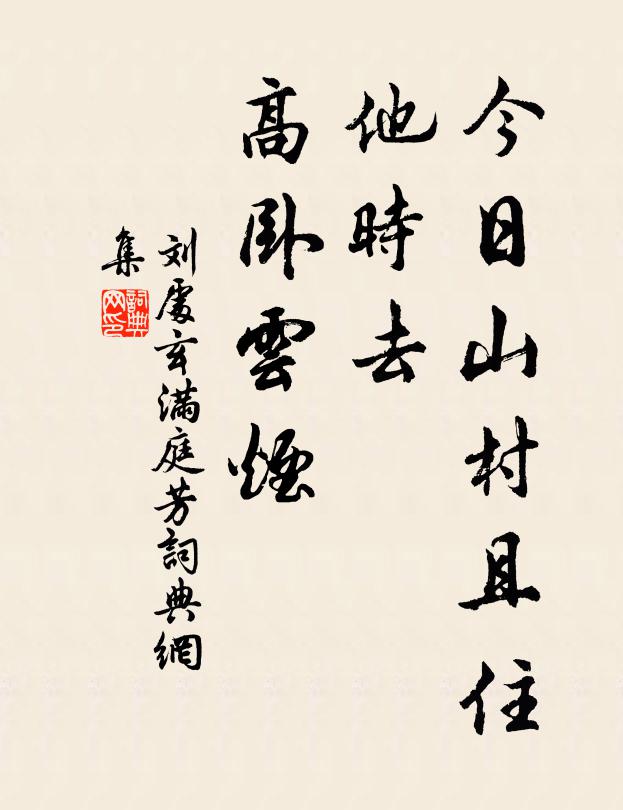 今日山村且住
他時去
高卧雲煙
刘處玄满庭芳詞典網
集
詞典网印